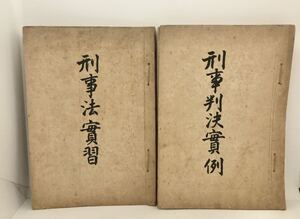 刑事法實習
刑事判決實例